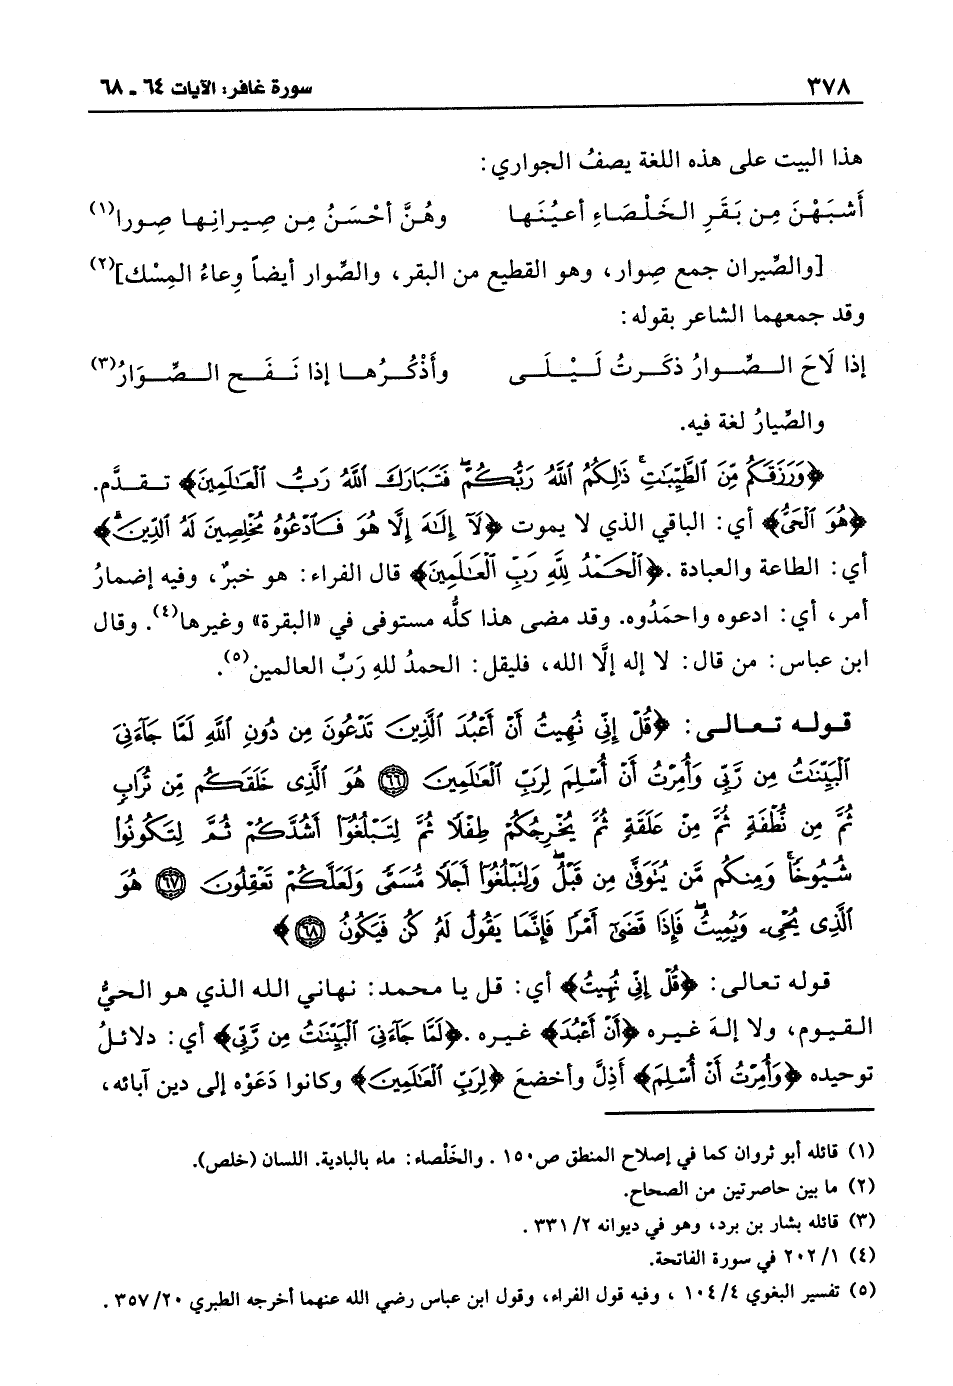 ٣٧٨ سورة غافر: الآيات ٦٤ ـ ٦٨
هذا البيت على هذه اللغة يصفُ الجواري:
أَشبَهْنَ مِن بَقَرِ الخَلْصَاءِ أعيُنَها وهُنَّ أحْسَنُ مِن صِيرانِها صِورا(١)
[والصِّيران جمع صِوار، وهو القطيع من البقر، والصِّوار أيضاً وِعاءُ المِسْك](٢)
وقد جمعهما الشاعر بقوله:
إذا لَاحَ الصِّوارُ ذكَرتُ لَيْلَى وأذْكُرُها إذا نَفَح الصِّوَارُ(٣)
والصِّيارُ لغة فيه.
﴿وَرَزَقَكُم مِّنَ ٱلطَّيِّبَٰتِۚ ذَٰلِكُمُ ٱللَّهُ رَبُّكُمْۖ فَتَبَارَكَ ٱللَّهُ رَبُّ ٱلْعَٰلَمِينَ﴾ تقدَّم.
﴿هُوَ ٱلْحَىُّ﴾ أي: الباقي الذي لا يموت ﴿لَآ إِلَٰهَ إِلَّا هُوَ فَٱدْعُوهُ مُخْلِصِينَ لَهُ ٱلدِّينَۗ﴾
أي: الطاعة والعبادة. ﴿ٱلْحَمْدُ لِلَّهِ رَبِّ ٱلْعَٰلَمِينَ﴾ قال الفراء: هو خبرٌ، وفيه إضمارُ
أمر، أي: ادعوه واحمَدُوه. وقد مضى هذا كلُّه مستوفى في «البقرة» وغيرها(٤). وقال
ابن عباس: من قال: لا إله إلَّا الله، فليقل: الحمدُ للهِ رَبِّ العالمين(٥).
قوله تعالى: ﴿قُلْ إِنِّى نُهِيتُ أَنْ أَعْبُدَ ٱلَّذِينَ تَدْعُونَ مِن دُونِ ٱللَّهِ لَمَّا جَآءَنِىَ
ٱلْبَيِّنَٰتُ مِن رَّبِّى وَأُمِرْتُ أَنْ أُسْلِمَ لِرَبِّ ٱلْعَٰلَمِينَ ٦٦ هُوَ ٱلَّذِى خَلَقَكُم مِّن تُرَابٍ
ثُمَّ مِن نُّطْفَةٍ ثُمَّ مِنْ عَلَقَةٍ ثُمَّ يُخْرِجُكُمْ طِفْلًا ثُمَّ لِتَبْلُغُوٓا۟ أَشُدَّكُمْ ثُمَّ لِتَكُونُوا۟
شُيُوخًاۚ وَمِنكُم مَّن يُتَوَفَّىٰ مِن قَبْلُۖ وَلِتَبْلُغُوٓا۟ أَجَلًا مُّسَمًّى وَلَعَلَّكُمْ تَعْقِلُونَ ٦٧ هُوَ
ٱلَّذِى يُحْىِۦ وَيُمِيتُۖ فَإِذَا قَضَىٰٓ أَمْرًا فَإِنَّمَا يَقُولُ لَهُۥ كُن فَيَكُونُ ٦٨﴾
قوله تعالى: ﴿قُلْ إِنِّى نُهِيتُ﴾ أي: قل يا محمد: نهاني الله الذي هو الحيُّ
القيوم، ولا إلهَ غيره ﴿أَنْ أَعْبُدَ﴾ غيره. ﴿لَمَّا جَآءَنِىَ ٱلْبَيِّنَٰتُ مِن رَّبِّى﴾ أي: دلائلُ
توحيده ﴿وَأُمِرْتُ أَنْ أُسْلِمَ﴾ أذِلَّ وأخضعَ ﴿لِرَبِّ ٱلْعَٰلَمِينَ﴾ وكانوا دَعَوْه إلى دين آبائه،
(١) قائله أبو ثروان كما في إصلاح المنطق ص١٥٠. والخَلْصاء: ماء بالبادية. اللسان (خلص).
(٢) ما بين حاصرتين من الصحاح.
(٣) قائله بشار بن برد، وهو في ديوانه ٢/ ٣٣١.
(٤) ١/ ٢٠٢ في سورة الفاتحة.
(٥) تفسير البغوي ٤/ ١٠٤، وفيه قول الفراء، وقول ابن عباس رضي الله عنهما أخرجه الطبري ٢٠/ ٣٥٧.